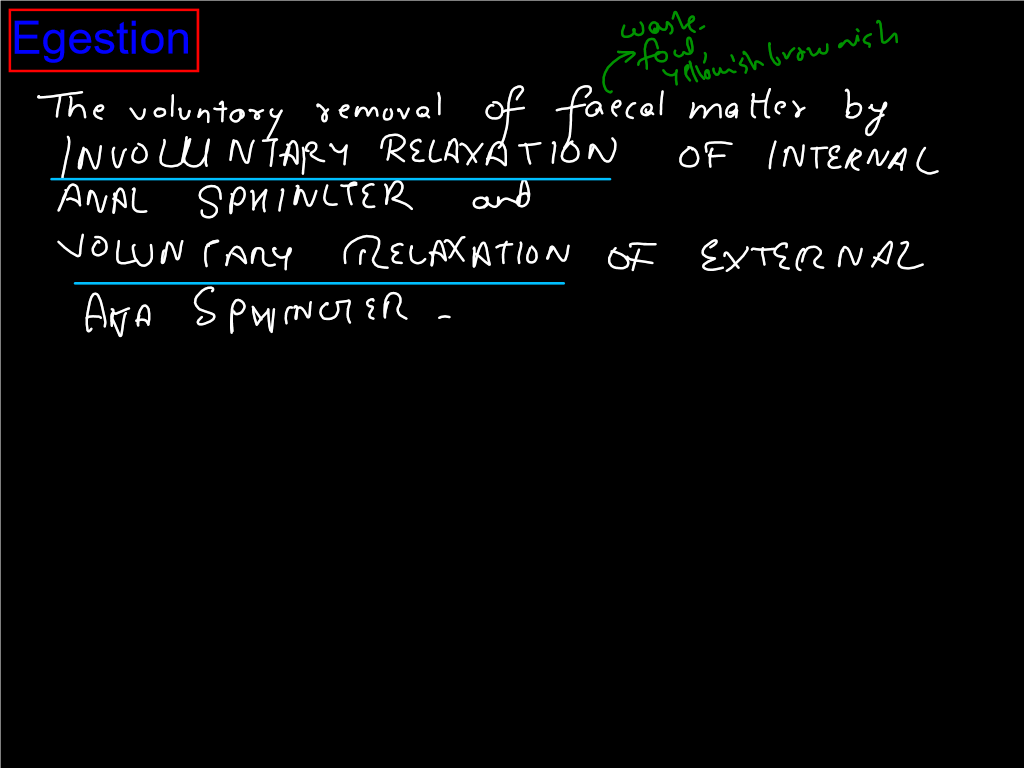 Egestion
waste.
foul,
yellowish brownish
The voluntary removal of faecal matter by
INVOLUNTARY RELAXATION OF INTERNAL
ANAL SPHINCTER and
VOLUNTARY RELAXATION OF EXTERNAL
SPHINCTER -